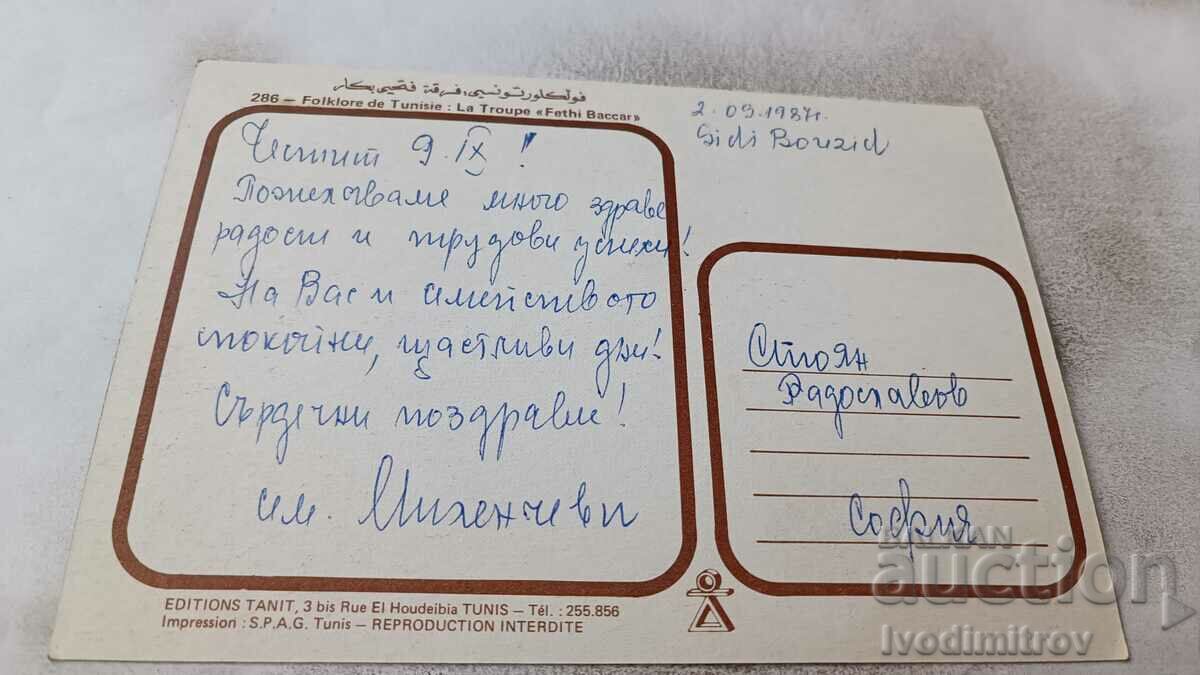 فولكلور تونسي، فرقة فتحي بكار
286 – Folklore de Tunisie : La Troupe «Fethi Baccar»
2.09.1987г.
Sidi Bouzid
Честит 9.IX!
Пожелаваме много здраве
радост и трудови успехи!
На Вас и семейството
спокойни, щастливи дни!
Сърдечни поздрави!
сем.
Стоян
Радославов
София
EDITIONS TANIT, 3 bis Rue El Houdeibia TUNIS – Tél. : 255.856
Impression : S.P.A.G. Tunis – REPRODUCTION INTERDITE
BALKAN
auction
Ivodimitrov